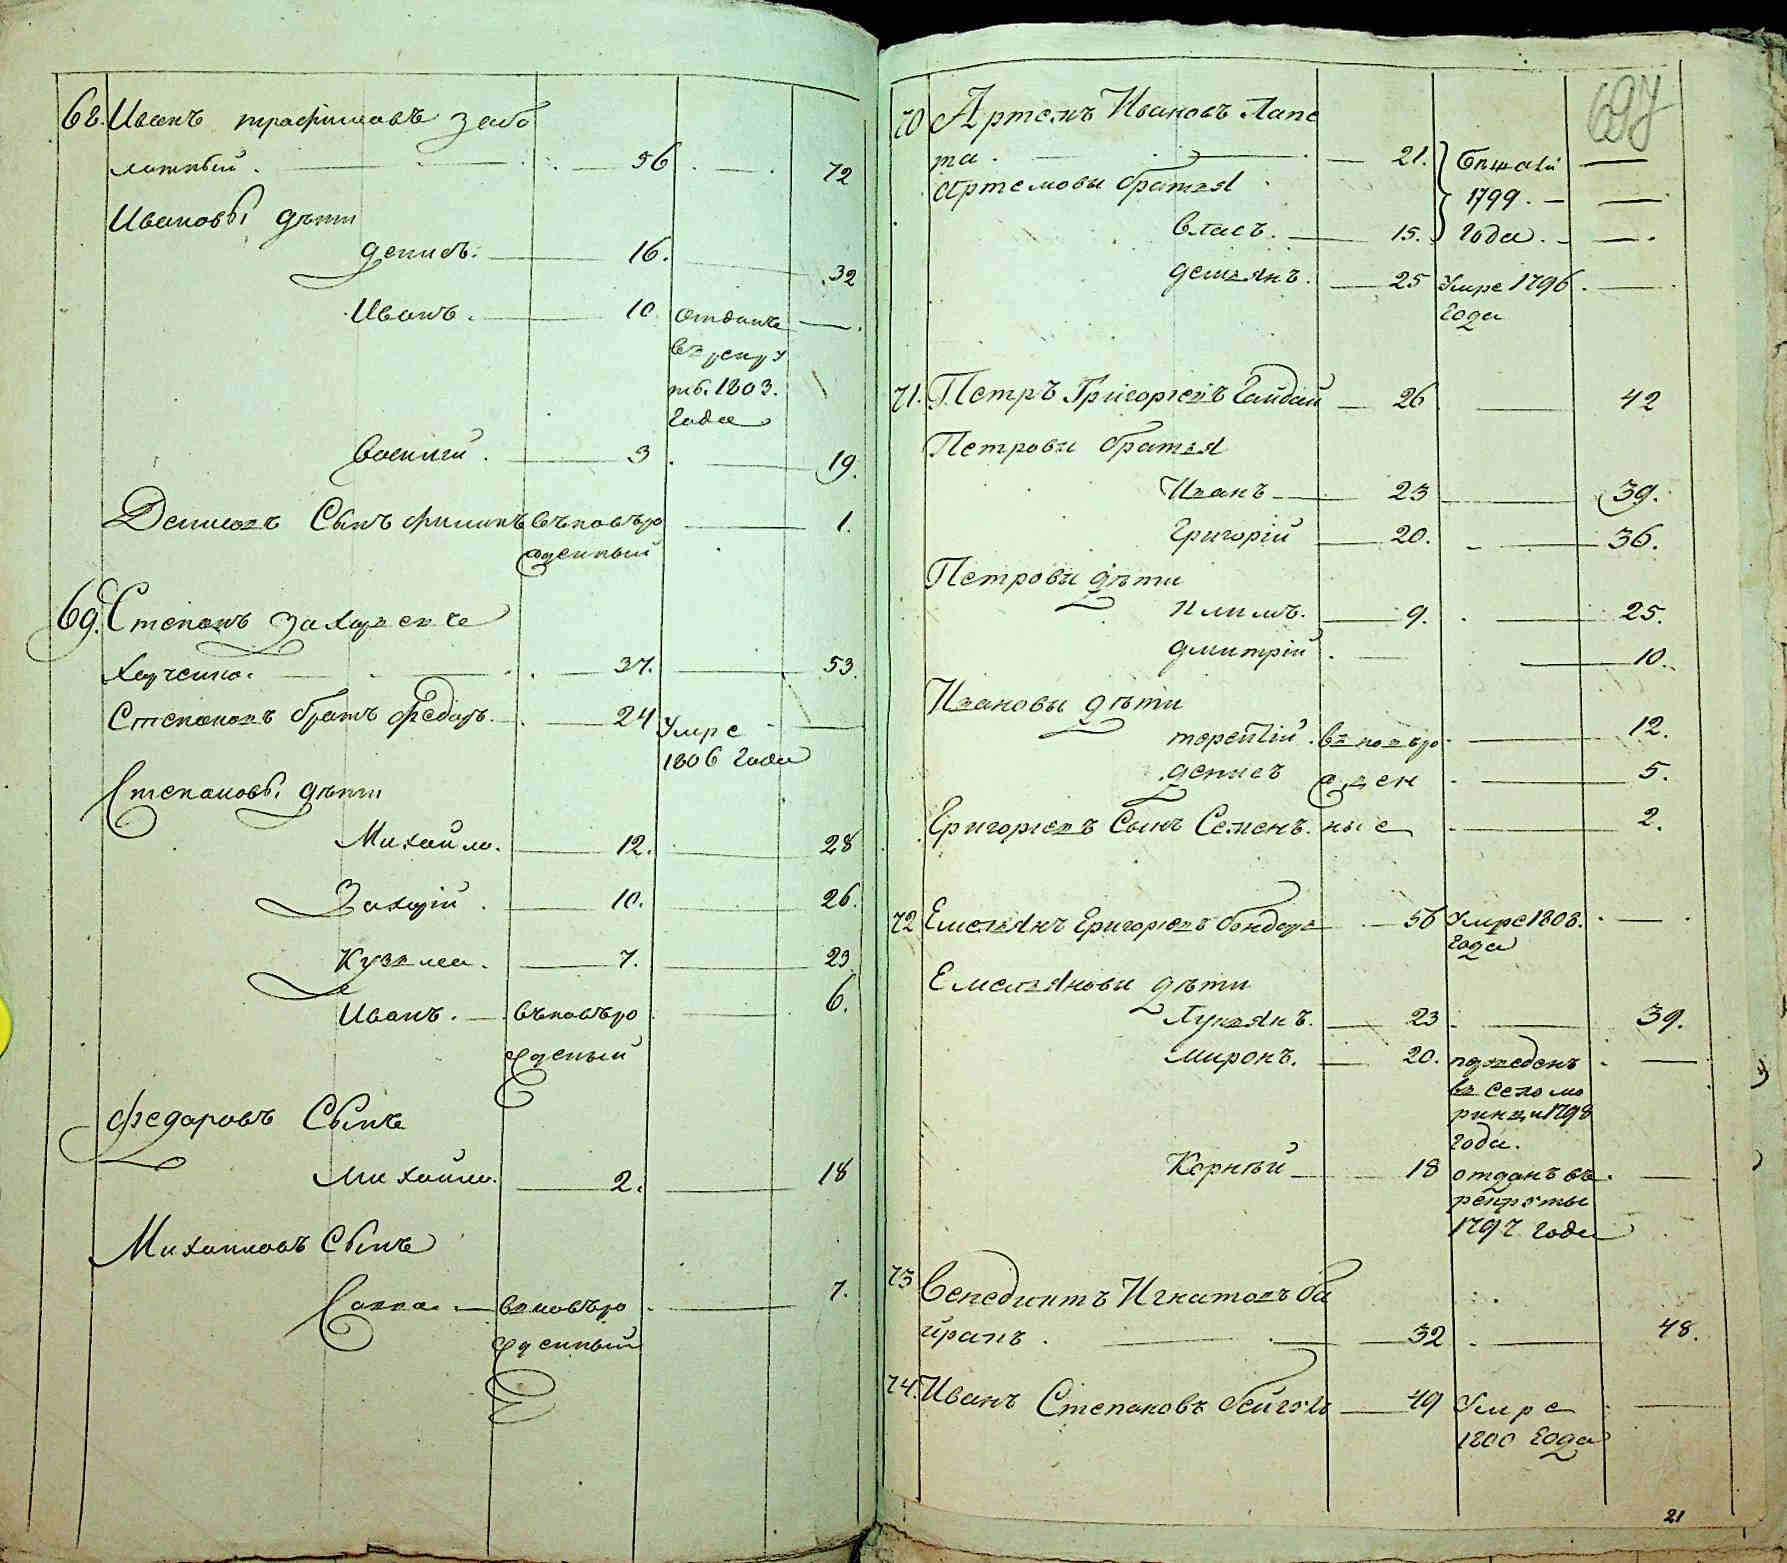 68. Иванъ трофимовъ забо
лотный. 56 72
Ивановы дѣти
денисъ. 16. 32
Иванъ. 10 отданъ
въ рекру
ты. 1803.
Года
василий. 3 19.
Денисовъ Сынъ филипъ въновъро 1.
жденный
69. Степанъ
37. 53.
Степановъ братъ федоръ. 24 Умре
1806 Года
Степановы дѣти
Михайло. 12. 28
Захарiй. 10. 26.
Кузьма. 7. 23
Иванъ. въновъро 6.
жденый
федоровъ Сынъ
Михайло. 2. 18
Михайловъ Сынъ
Савва вновъро 7.
жденный
697
70 Артемъ Ивановъ Лапе
та. 21. бежали
Артемовы братья 1799.
власъ. 15. Года.
демьянъ. 25 Умре 1796
Года
71. Петръ Григорьевъ Гайдай 26 42
Петровы братья
Иванъ 23 39.
Григорiй 20. 36.
Петровы дѣти
климъ. 9. 25.
дмитрiй 10.
Ивановы дѣти
терентiй. въ новъро 12.
денисъ жден 5.
Григорьевъ Сынъ Семенъ. ные 2.
72 Емельянъ Григорьевъ бондарь 56 Умре 1808.
года
Емельяновы дѣти
Лукьянъ. 23 39.
миронъ. 20. переведенъ
въ село мо
ринцы 1798
Года.
Корнѣй 18 отданъ въ
рекруты
1797 Года
73 Венедиктъ Игнатовъ ба
йракъ. 32 48.
74. Иванъ Степановъ 49 Умре
1800 Года
21